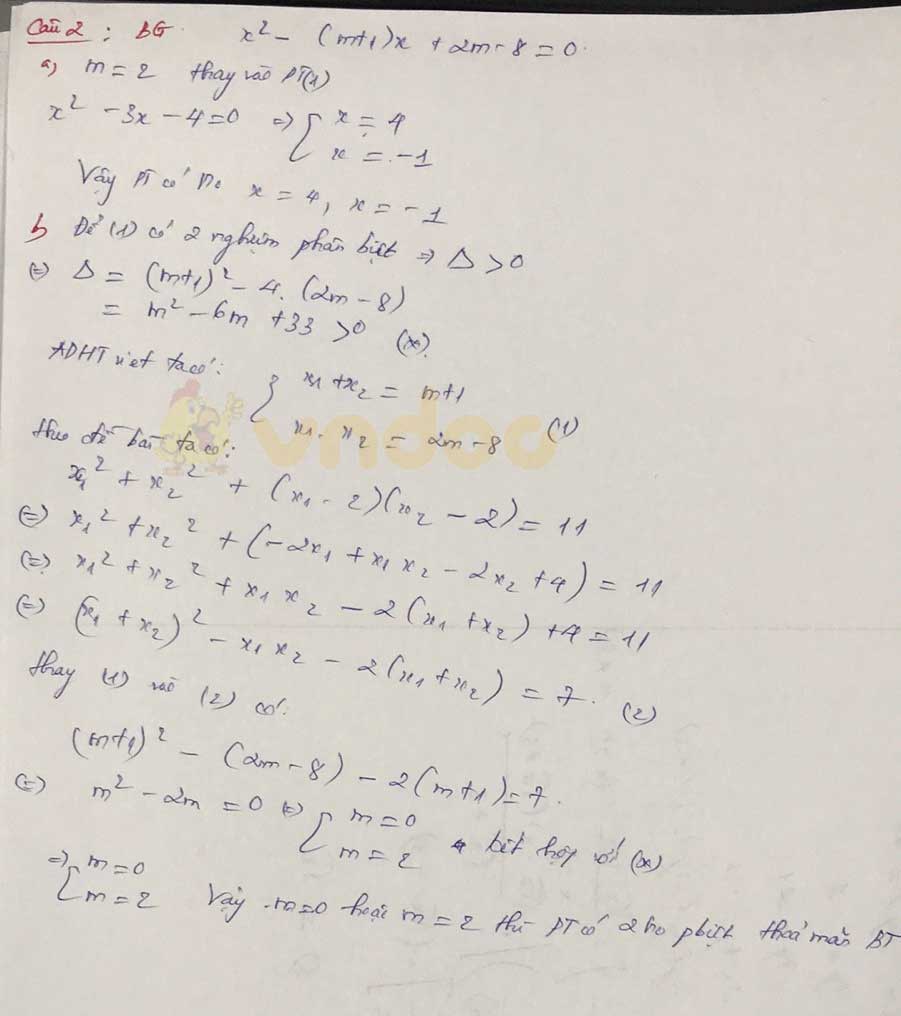 Câu 2 : BG. x² - (m+1)x + 2m - 8 = 0.
a) m = 2 thay vào PT(1)
x² - 3x - 4 = 0 => { x = 4
x = -1
Vậy PT có no x = 4, x = -1
b Để (1) có 2 nghiệm phân biệt => Δ > 0
(=) Δ = (m+1)² - 4. (2m - 8)
= m² - 6m + 33 > 0 (*).
ADHT viet ta có: { x₁ + x₂ = m+1
x₁. x₂ = 2m - 8 (1)
vndoc
theo đề bài ta có:
x₁² + x₂² + (x₁ - 2)(x₂ - 2) = 11
(=) x₁² + x₂² + (-2x₁ + x₁x₂ - 2x₂ + 4) = 11
(=) x₁² + x₂² + x₁x₂ - 2(x₁ + x₂) + 4 = 11
(=) (x₁ + x₂)² - x₁x₂ - 2(x₁ + x₂) = 7. (2)
thay (1) vào (2) có:
(m+1)² - (2m - 8) - 2(m+1) = 7.
(=) m² - 2m = 0 (=) { m = 0
m = 2 kết hợp với (*)
=> { m = 0
m = 2 Vậy m=0 hoặc m = 2 thì PT có 2 no pbiệt thoả mãn BT